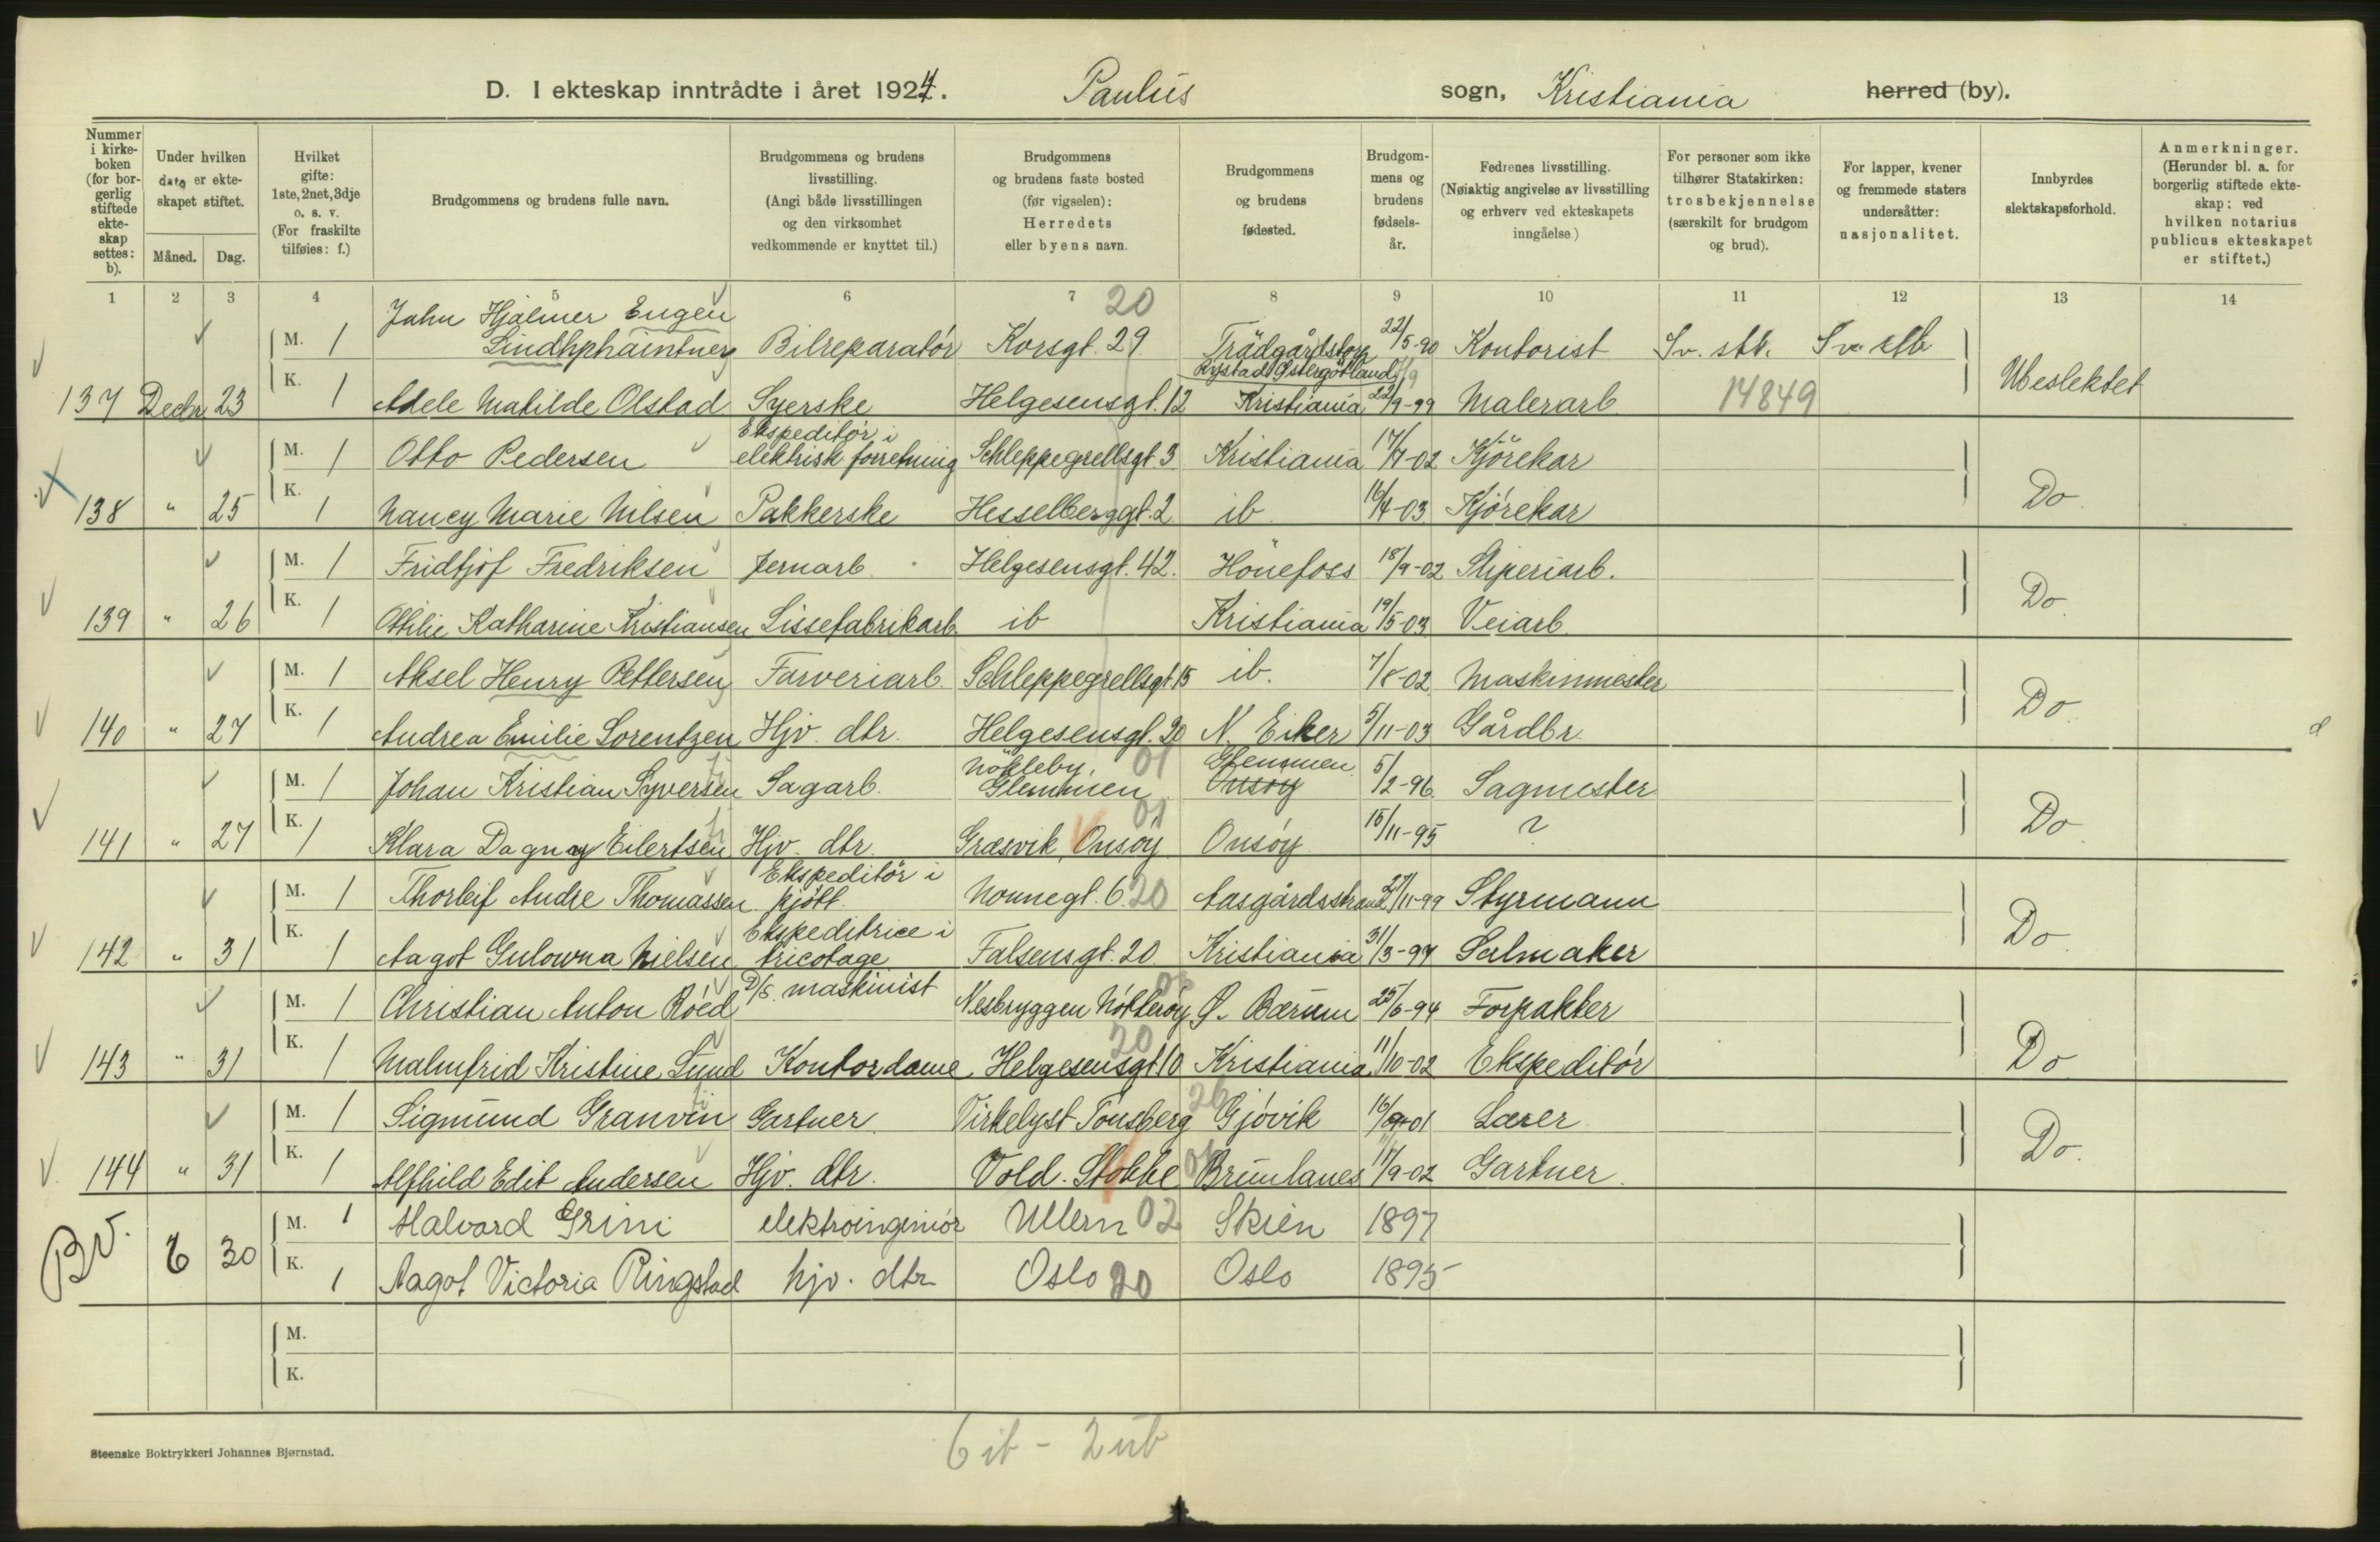 D. I ekteskap inntrådte i året 1924. Paulus sogn, Kristiania herred (by).
Nummer i kirkeboken (for borgerlig stiftede ekteskap settes: b).
Under hvilken dato er ekteskapet stiftet.
Måned. Dag.
Hvilket gifte: 1ste, 2net, 3dje o. s. v. (For fraskilte tilføies: f.)
Brudgommens og brudens fulle navn.
Brudgommens og brudens livsstilling. (Angi både livsstillingen og den virksomhet vedkommende er knyttet til.)
Brudgommens og brudens faste bosted (før vigselen): Herredets eller byens navn.
Brudgommens og brudens fødested.
Brudgommens og brudens fødselsår.
Fedrenes livsstilling. (Nøiaktig angivelse av livsstilling og erhverv ved ekteskapets inngåelse.)
For personer som ikke tilhører Statskirken: trosbekjennelse (særskilt for brudgom og brud).
For lapper, kvener og fremmede staters undersåtter: nasjonalitet.
Innbyrdes slektskapsforhold.
Anmerkninger. (Herunder bl. a. for borgerlig stiftede ekteskap: ved hvilken notarius publicus ekteskapet er stiftet.)
1 2 3 4 5 6 7 8 9 10 11 12 13 14
20
John Hjalmer Eugen
M. 1 Bilreparatör Korsgt. 29 Trädgårdstorp 22/5-90 Kontorist Sv. stb. Sv. stb
Rystad Østergötland
137 Decbr 23 K. 1 Adele Matilde Olstad Syerske Helgesensgt. 12 Kristiania 22/9-99 Malerarb. 14849 Ubeslektet
Ekspeditör i
M. 1 Otto Pedersen elektrisk forretning Schleppegrellsgt. 3 Kristiania 17/7-02 Kjörekar
138 " 25 K. 1 Nancy Marie Nilsen Pakkerske Hesselberggt. 2 ib 16/4-03 Kjörekar Do
M. 1 Fridtjof Fredriksen Jernarb. Helgesensgt. 42. Hönefoss 18/9-02 Sliperiarb.
139 " 26 K. 1 Othilie Katharine Kristiansen Lissefabrikarb. ib Kristiania 19/5-03 Veiarb. Do
M. 1 Aksel Henry Pettersen Farveriarb. Schleppegrellsgt. 15 ib. 7/8-02 Maskinmester
140 " 27 K. 1 Andrea Emilie Lorentzen Hjv. dtr. Helgesensgt. 20 N. Eiker 5/11-03 Gårdbr. Do
Nökleby, 01 Glemmen
M. 1 Johan Kristian Syversen Sagarb. Glemmen Onsöy 5/2-96 Sagmester
01
141 " 27 K. 1 Klara Dagny Eilertsen Hjv. dtr. Græsvik, Onsöy Onsöy 15/11-95 ? Do
Ekspeditör i
M. 1 Thorleif Andre Thomassen kjött. Nonnegt. 6. 20 Aasgårdsstrand 27/11-99 Styrmann
Ekspeditrice i
142 " 31 K. 1 Aagot Gulowna Nielsen tricotage Falsensgt. 20 Kristiania 31/3-97 Salmaker Do
M. 1 Christian Anton Röed D/S. maskinist Nesbryggen Nötteröy Ø. Bærum 25/6-94 Forpakter
20
143 " 31 K. 1 Malmfrid Kristine Lund Kontordame Helgesensgt. 10 Kristiania 11/10-02 Ekspeditör Do
M. 1 Sigmund Granvin Gartner Virkelyst Tonsberg 26 Gjövik 16/9-01 Lærer
144 " 31 K. 1 Alfhild Edit Andersen Hjv. dtr. Vold. Stokke Brunlanes 17/9-02 Gartner Do.
BV. 6 30 M. 1 Halvard Grini elektroingeniör Ullern 02 Skien 1897
K. 1 Aagot Victoria Ringstad hjv. dtr Oslo 20 Oslo 1895
M.
K.
6 ib - 2 ub
Steenske Boktrykkeri Johannes Bjørnstad.